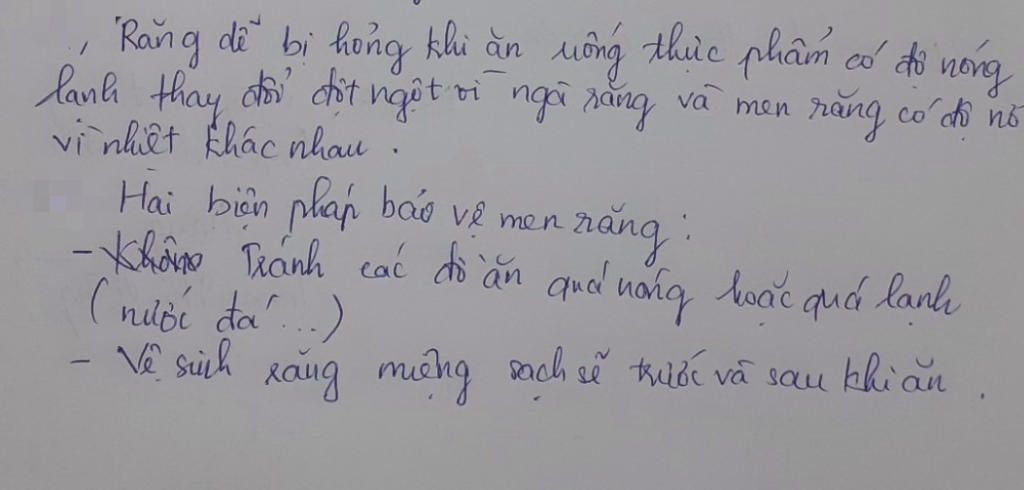 , Răng dễ bị hỏng khi ăn uống thực phẩm có độ nóng
lạnh thay đổi đột ngột vì ngà răng và men răng có độ nở
vì nhiệt khác nhau.
Hai biện pháp bảo vệ men răng:
- Tránh các đồ ăn quá nóng hoặc quá lạnh
(nước đá...)
- Vệ sinh răng miệng sạch sẽ trước và sau khi ăn.